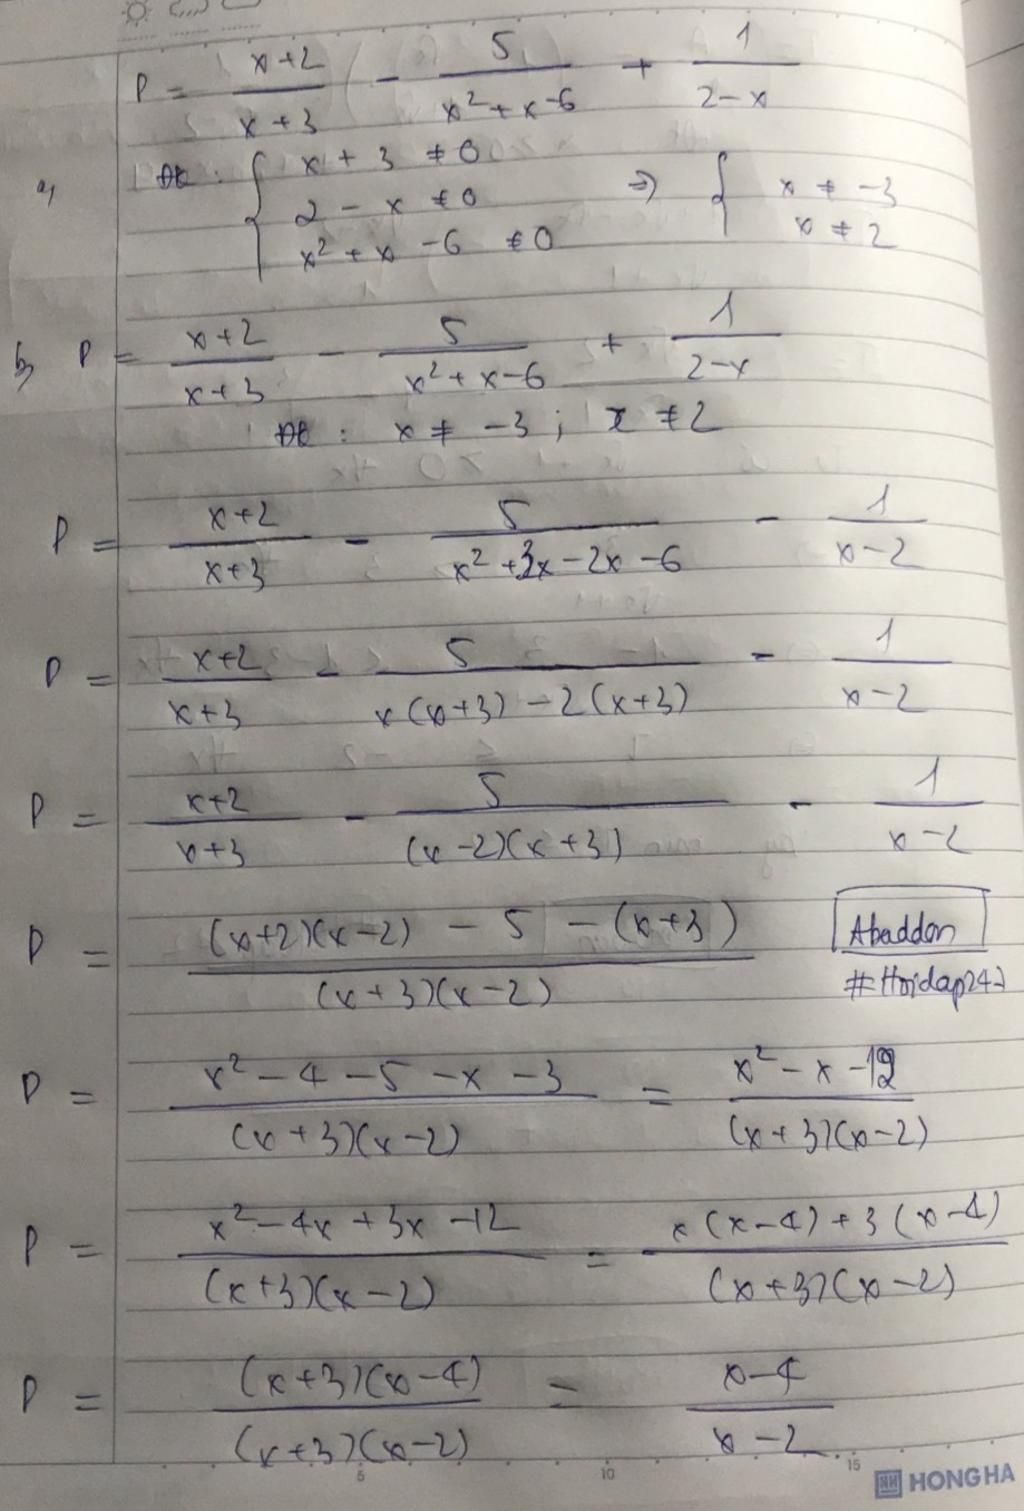 P = (x+2)/(x+3) - 5/(x²+x-6) + 1/(2-x)
a, ĐK : { x + 3 ≠ 0
2 - x ≠ 0
x² + x - 6 ≠ 0 => { x ≠ -3
x ≠ 2
b, P = (x+2)/(x+3) - 5/(x²+x-6) + 1/(2-x)
ĐK : x ≠ -3 ; x ≠ 2
P = (x+2)/(x+3) - 5/(x²+3x-2x-6) - 1/(x-2)
P = (x+2)/(x+3) - 5/(x(x+3)-2(x+3)) - 1/(x-2)
P = (x+2)/(x+3) - 5/((x-2)(x+3)) - 1/(x-2)
P = ((x+2)(x-2) - 5 - (x+3))/((x+3)(x-2))
Abaddon
#Hoidap247
P = (x²-4-5-x-3)/((x+3)(x-2)) = (x²-x-12)/((x+3)(x-2))
P = (x²-4x+3x-12)/((x+3)(x-2)) = (x(x-4)+3(x-4))/((x+3)(x-2))
P = ((x+3)(x-4))/((x+3)(x-2)) = (x-4)/(x-2)
5 10 15
HONG HA